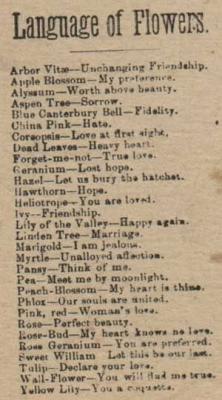 Language of Flowers.
Arbor Vitæ—Unchanging Friendship.
Apple Blossom—My preference.
Alyssum—Worth above beauty.
Aspen Tree—Sorrow.
Blue Canterbury Bell—Fidelity.
China Pink—Hate.
Coreopsis—Love at first sight.
Dead Leaves—Heavy heart.
Forget-me-not—True love.
Geranium—Lost hope.
Hazel—Let us bury the hatchet.
Hawthorn—Hope.
Heliotrope—You are loved.
Ivy—Friendship.
Lily of the Valley—Happy again.
Linden Tree—Marriage.
Marigold—I am jealous.
Myrtle—Unalloyed affection.
Pansy—Think of me.
Pea—Meet me by moonlight.
Peach-Blossom—My heart is thine.
Phlox—Our souls are united.
Pink, red—Woman's love.
Rose—Perfect beauty.
Rose-Bud—My heart knows no love.
Rose Geranium—You are preferred.
Sweet William—Let this be our last.
Tulip—Declare your love.
Wall-Flower—You will find me true.
Yellow Lily—You a coquette.